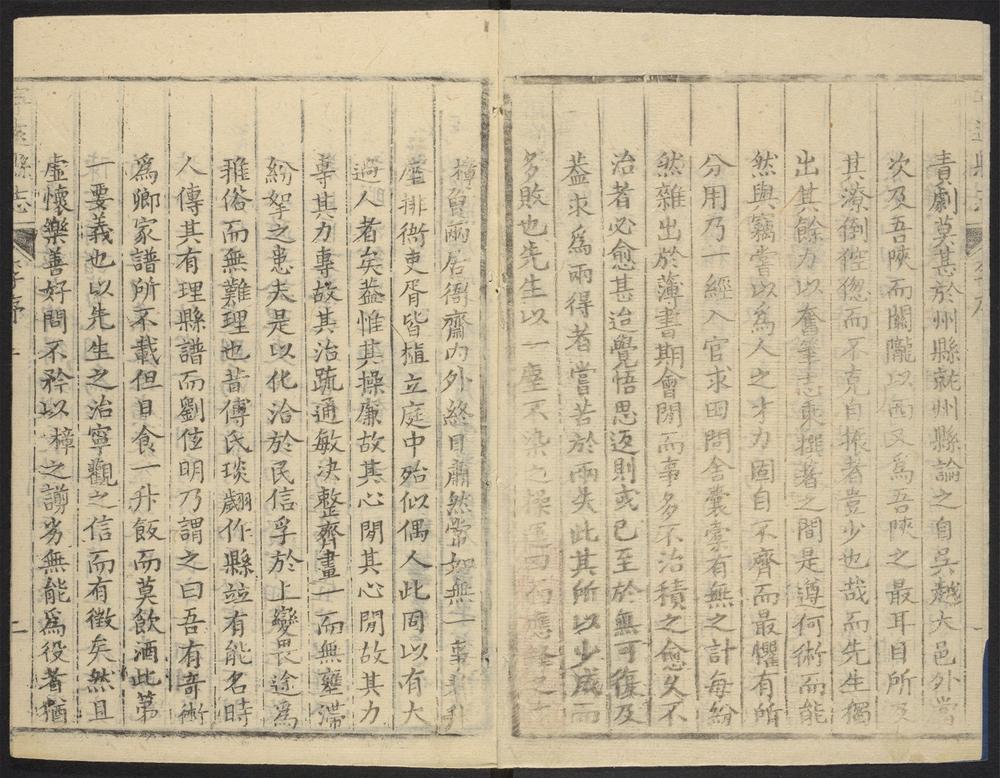 責劇莫甚於州縣就州縣論之自吳越大邑外當
次及吾陝而關隴以西又爲吾陝之最耳目所及
其潦倒倥偬而不克自振者豈少也哉而先生獨
出其餘力以奮筆志乘撰著之間是遵何術而能
然與竊嘗以爲人之才力固自不齊而最懼有所
分用乃一經入官求田問舍囊橐有無之計每紛
然雜出於薄書期會閒而事多不治積之愈久不
治者必愈甚迨覺悟思返則或已至於無可復及
葢求爲兩得者嘗苦於兩失此其所以少成而
多敗也先生以一塵不染之操
樟曾兩居衙齋內外終日肅然常如無一事者升
座排衙吏胥皆植立庭中殆似偶人此固以有大
過人者矣葢惟其操廉故其心閒其心閒故其力
專其力專故其治䟽通敏決整齊畫一而無壅滯
紛挐之患夫是以化洽於民信孚於上變畏途爲
雅俗而無難理也昔傅氏琰翽作縣竝有能名時
人傳其有理縣譜而劉𢓜明乃謂之曰吾有竒術
爲卿家譜所不載但日食一升飯而莫飲酒此第
一要義也以先生之治寧觀之信而有徵矣然且
虛懷樂善好問不矜以樟之謭劣無能爲役者猶
縣志
序
二